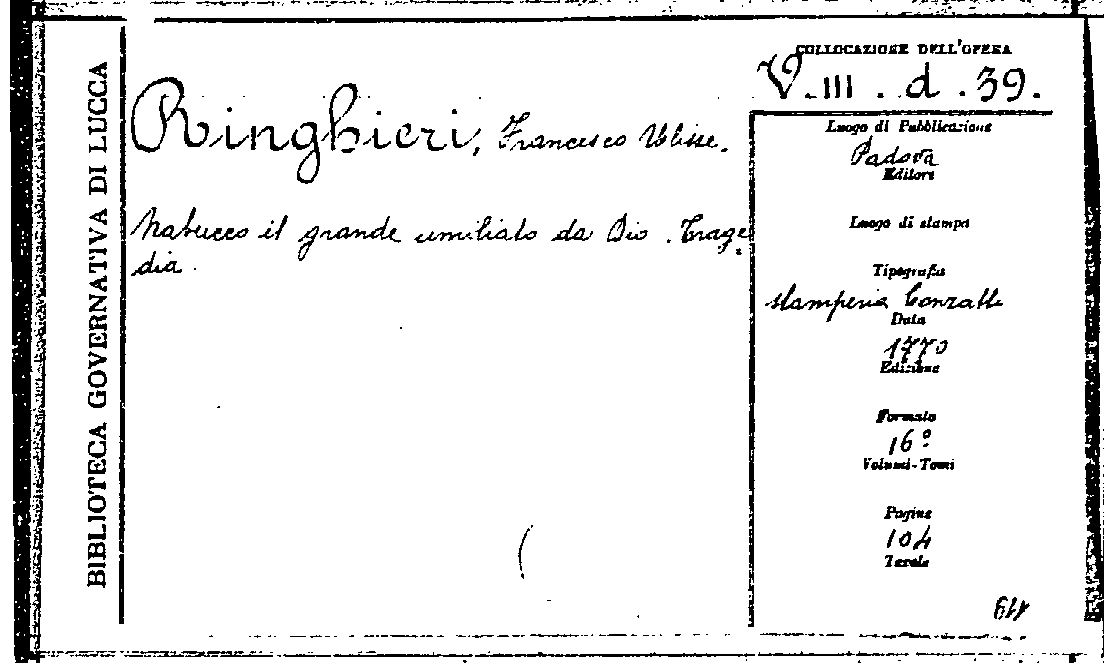 BIBLIOTECA GOVERNATIVA DI LUCCA
COLLOCAZIONE DELL'OPERA
V. III . d . 39.
Ringhieri, Francesco Ulisse.
Nabucco il grande umiliato da Dio . Trage
dia .
Luogo di Pubblicazione
Padova
Editore
Luogo di stampa
Tipografia
stamperia Conzatti
Data
1770
Edizione
Formato
16º
Volumi-Tomi
Pagine
104
Tavole